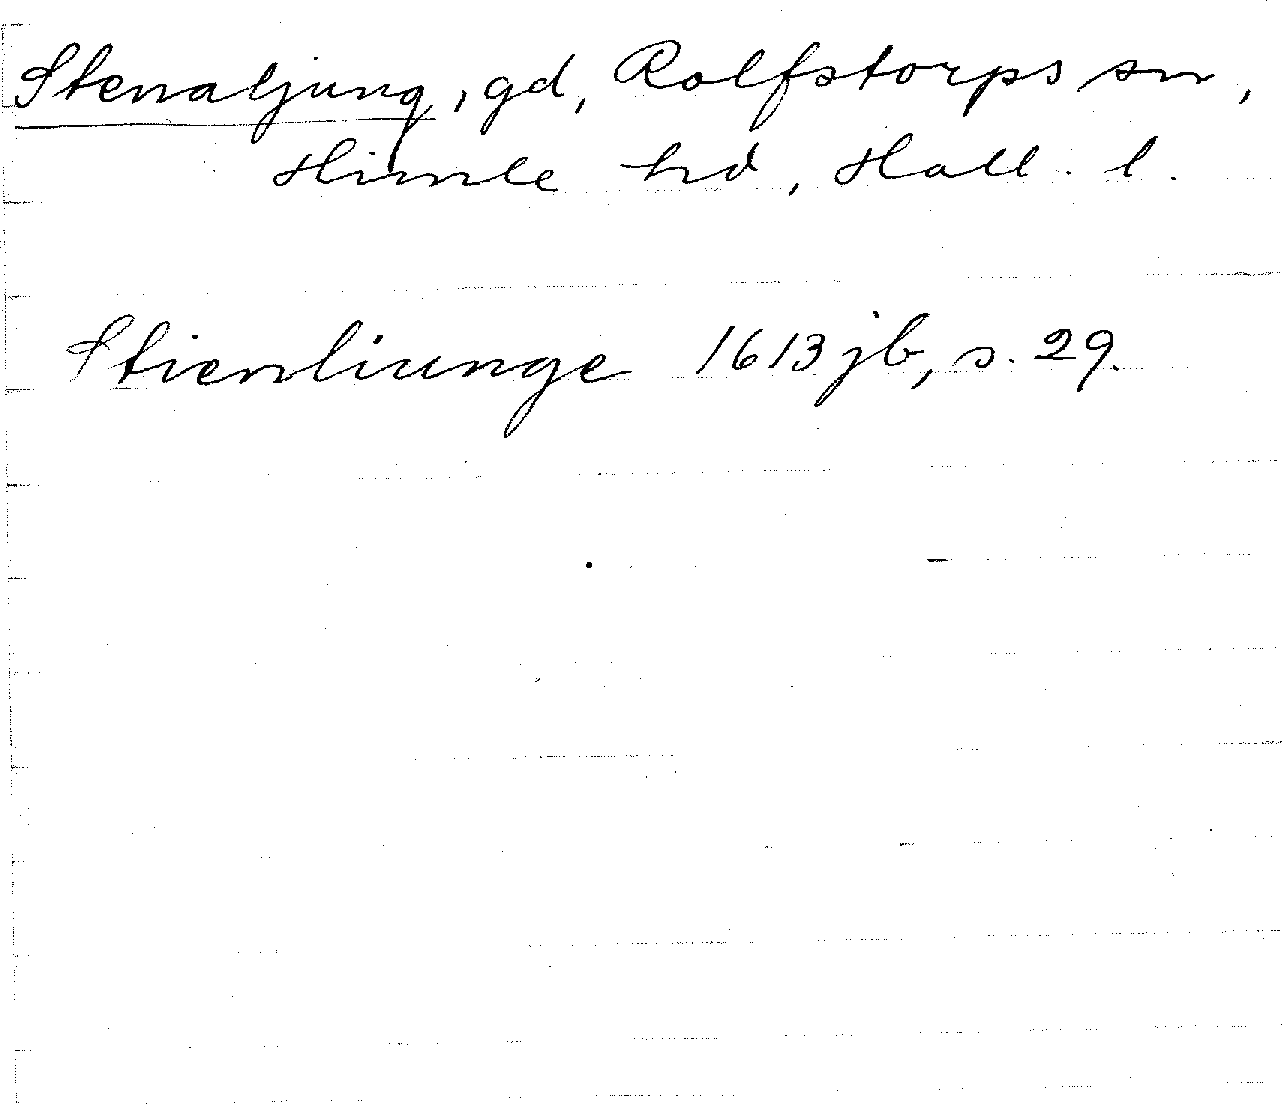 Stenaljung, gd, Rolfstorps sn,
Himle hd, Hall. l.
Stienliunge 1613 jb, s. 29.